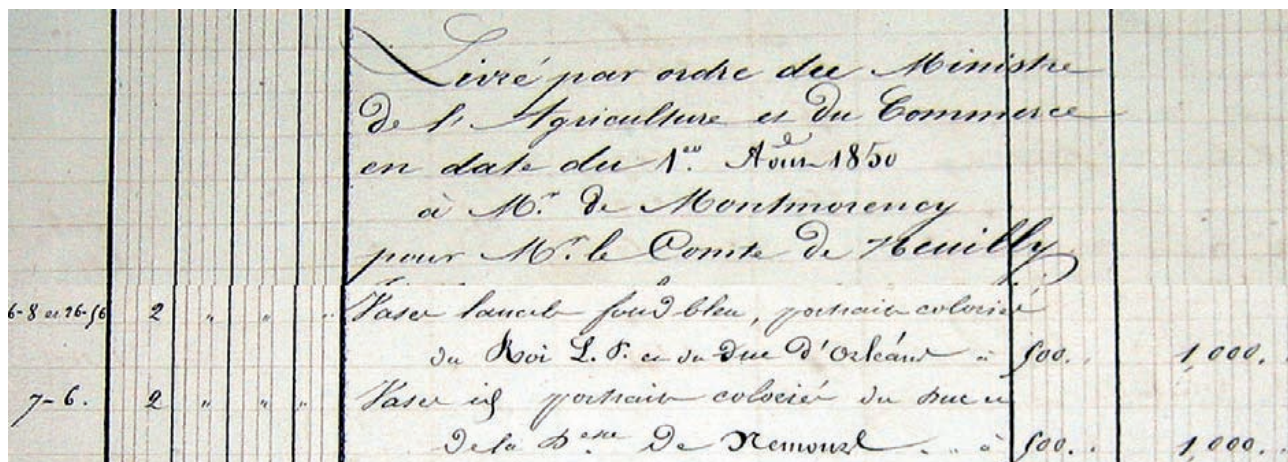 Livré par ordre du Ministre
de l'Agriculture et du Commerce
en date du 1er. Août 1850
à Mr. de Montmorency
pour Mr. le Comte de Neuilly
6-8 et 26-56 2 " " " Vases lancelle fond bleu, portrait colorié
du Roi L. P. et du Duc d'Orléans à 500. 1,000.
7-6. 2 " " " Vases id portrait colorié du Duc et
de la Desse de Nemours " à 500. 1,000.